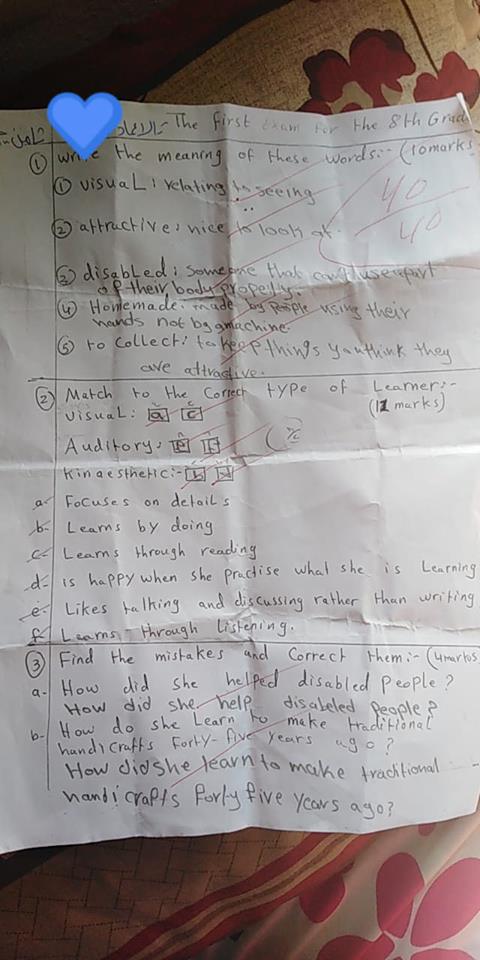 The First Exam for the 8th Grad
① write the meaning of these words:- (10marks
① visual: relating to seeing
40
40
② attractive: nice to look at.
③ disabled: someone that can't use part
of their body properly.
④ Homemade: made by people using their
hands not by amachine.
⑤ to collect: to keep things you think they
are attractive.
② Match to the Correct type of Learner:-
(12 marks)
visual: a c
Auditory: e f
Kinaesthetic:- b d
a- Focuses on details
b- Learns by doing
c- Learns through reading
d- is happy when she practise what she is Learning
e- Likes talking and discussing rather than writing
f- Learns through listening.
③ Find the mistakes and Correct them:- (4marks)
a- How did she helped disabled people?
How did she help disableled people?
b- How do she Learn to make traditional
handicrafts Forty-five years ago?
How did she learn to make traditional
handicrafts forty five years ago?